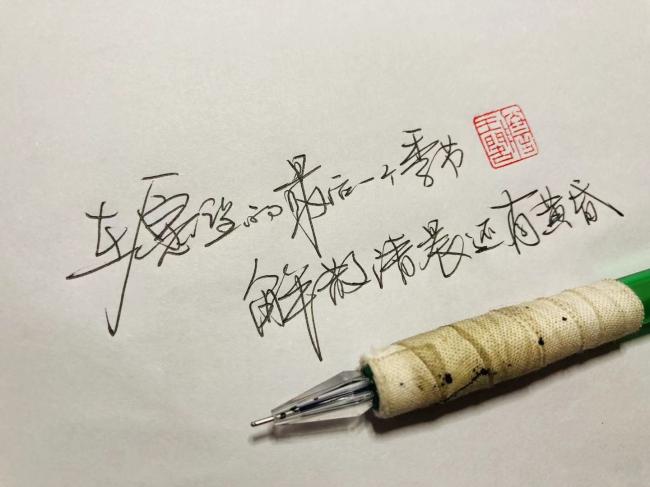 的最后一个季节
解散清晨还有黄昏